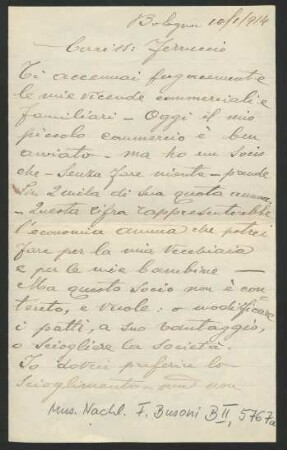 Bologna 10/1/914
Cariss: Ferruccio
Ti accennai fugacemente
le mie vicende commerciali e
familiari – Oggi il mio
piccolo commercio è ben
avviato – ma ho un Socio
che – senza fare niente – prende
2 mila di sua quota annua
– Questa cifra rappresenterebbe
l'economia annua che potrei
fare per la mia vecchiaia
e per le mie bambine —
Ma questo socio non è con-
tento, e vuole: o modificare
i patti, a suo vantaggio,
o sciogliere la Società.
Io dovrei preferire lo
scioglimento – non
Mus. Nachl. F. Busoni B II, 5767a